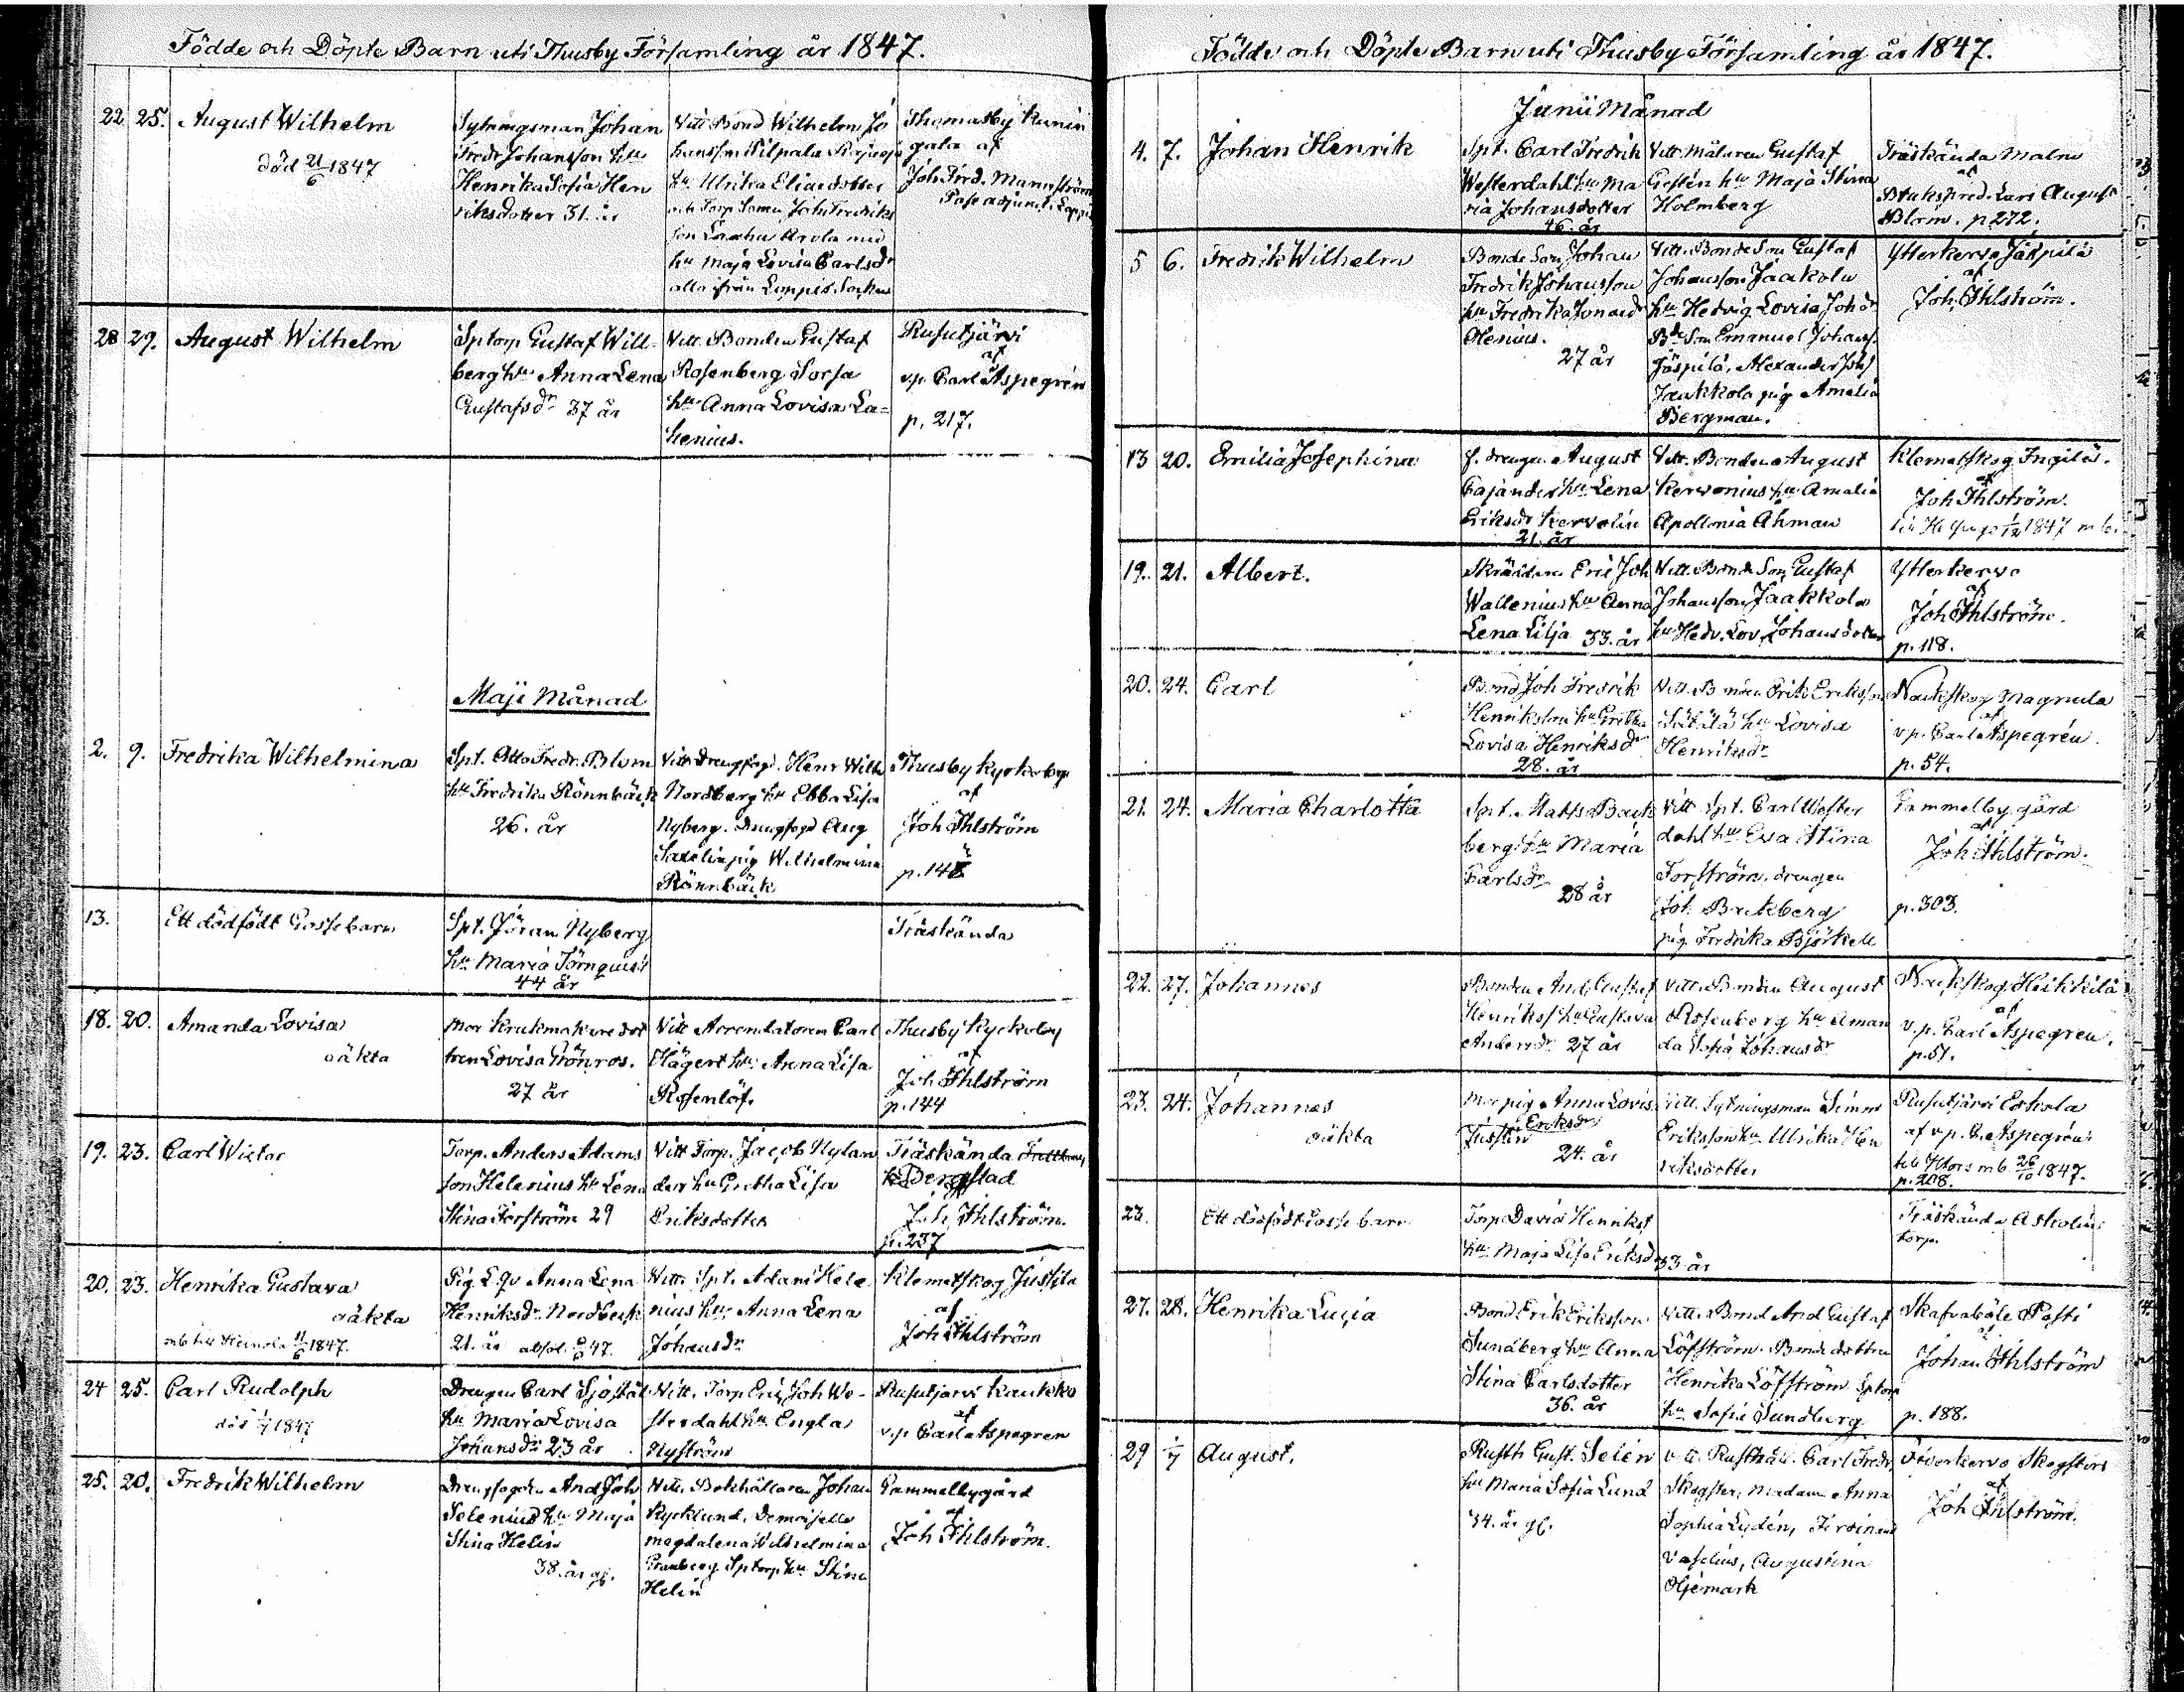 Födde och Döpte Barn uti Thusby Församling år 1847.
22 25. August Wilhelm
död 21/6 1847
Sytningsman Johan
Fredr Johansson hu
Henrika Sofia Hen
riksdotter 31. år
Vitt Bond Wilhelm Jo
hansson Pilpala
hu. Ulrika Eliaedotter
och Torp Sonen Joh Fredriks
son
hu Maja Lovisa Carlsdr
alla ifrån Loppis Socken
Thomasby Kunin
gala af
Joh Fred. Mannström
Past adjunct i Loppis
28 29. August Wilhelm
Sptorp Gustaf Will-
berg hu Anna Lena
Gustafsdr 37 år
Vitt. Bonden Gustaf
Rosenberg Sorsa
hu Anna Lovisa La=
henius.
Rusutjärvi
af
v.p. Carl Aspegrén
p. 217.
Maji Månad
2. 9. Fredrika Wilhelmina
Spt. Otto Fredr. Blom
hu Fredrika Rönnbäck
26. år
Vitt. Drengfogd. Henr Wilh
Nordberg hu Ebba Lisa
Nyberg. Drengfogd Aug
Saxelin pig Wilhelmina
Rönnbäck
Thusby Kyrkoby
af
Joh Ihlström
13. Ett dödfödt Gossebarn
Spt. Jöran Nyberg
hu Maria Törnquist
44 år
Träskända
18. 20. Amanda Lovisa
oäkta
Mor Krukmakare dot
tren Lovisa Grönros.
27 år
Vitt Arrendatoren Carl
Hägert hu. Anna Lisa
Rosenlöf.
Thusby Kyrkoby
af
Joh Ihlström
p. 144
19. 23. Carl Wictor
Torp. Anders Adams
son Helenius hu Lena
Stina Forström 29
Vitt Torp. Jacob Nylan
der hu Gretha Lisa
Eriksdotter
Träskända
Bergstad
Joh Ihlström.
p. 237
20. 23. Henrika Gustava
oäkta
mb till Heinola 11/6 1847.
Pig L. Qv Anna Lena
Henriksdr Nordbeck
21. år absol. 47.
Vitt. Spt. Adam Hele
nius hu Anna Lena
Johansdr
Klemetskog Jussila
af
Joh Ihlström
24 25. Carl Rudolph
död 1/7 1847
Drengen Carl Sjöstål
hu Maria Lovisa
Johansdr 23 år
Vitt. Torp Eric Joh We-
sterdahl hu Engla
Nyström
Rusutjärvi Kaukko
af
v.p Carl Aspegren
25. 20. Fredrik Wilhelm
Drengfogden And Joh
Selenius hu Maja
Stina Helin
38. år gl.
Vitt. Bokhållaren Johan
Rycklund, Demoiselle
Magdalena Wilhelmina
Granberg Sptorp hu Stina
Helin
Gammelbygård
af
Joh Ihlström.
Födde och Döpte Barn uti Thusby Församling år 1847.
Junii Månad
4. 7. Johan Henrik
Spt. Carl Fredrik
Westerdahl hu Ma
ria Johansdotter
46. år
Vitt. Målaren Gustaf
Gestén hu Maja Stina
Holmberg
Träskända Malm
af
Bruks pred. Lars August
Blom. p 272.
5 6. Fredrik Wilhelm
Bonde Son Johan
Fredrik Johansson
hu Fredrika Jonaedr
Olenius.
27 år
Vitt. Bonde Son Gustaf
Johansson Jaakola
hu Hedvig Lovisa Johdr
Bde Son Emanuel Johans
Jäspilä, Alexander Johs
Jaakkola pig Amalia
Bergman.
Ytterkervo Jäspilä
af
Joh Ihlström.
13 20. Emilia Josephina
f. drengen August
Cajander hu Lena
Eriksdr Kervolin
21. år
Vitt. Bonden August
Kervonius hu Amalia
Apollonia Åhman
Klemetskog Ingilä.
af
Joh Ihlström.
1847 mb.
19. 21. Albert.
Skräddare Eric Joh
Wallenius hu Anna
Lena Lilja 33. år
Vitt. Bonde Son Gustaf
Johansson Jaakkola
hu Hedv. Lov. Johansdotter
Ytterkervo
af
Joh Ihlström.
p. 118.
20. 24. Carl
Bond Joh Fredrik
Henriksson hu Gretha
Lovisa Henriksdr
28. år
Vitt. Bonden Erik Eriksson
hu Lovisa
Henriksdr
Nackskog Magnula
af
v p. Carl Aspegrén.
p. 54.
21. 24. Maria Charlotta
Spt. Matts Back
berg hu Maria
Carlsdr
28 år
Vitt Spt. Carl Wester
dahl hu Eva Stina
Forström. drengen
Joh. Backberg
pig. Fredrika Björkell
Gammelby gård
af
Joh Ihlström.
p. 303.
22. 27. Johannes
Bonden And. Gustaf
Henrikss hu Gustava
Andersdr 27 år
Vitt. Bonden August
Rosenberg hu Aman
da Sofia Johansdr
Nackskog Heikkilä
af
v.p. Carl Aspegren.
p. 51.
23. 24. Johannes
oäkta
Mor pig Anna Lovis.
Eriksdr
Justén
24. år
Vitt. Sytningsman Simm
Eriksson hu Ulrika Hen
riksdotter
Rusutjärvi Eskola
af v.p. C. Aspegrén
till Hfors mb 26/10 1847.
p. 208.
23. Ett dödfödt Gosse barn
Torp David Henrikss
hu Maja Lisa Eriksdr 33 år
Träskända Askolin
torp.
27. 28. Henrika Lucia
Bond Erik Eriksson
Sundberg hu Anna
Stina Carlsdotter
36. år
Vitt. Bond And Gustaf
Löfström. Bonde dottren
Henrika Löfström Sptorp
hu Sofia Sundberg
Skafvaböle Pasti
af
Johan Ihlström
p. 188.
29 1/7 August.
Rusth Gust. Selén
hu Maria Sofia Lund
34. år gl.
Vitt. Rusthåll. Carl Fredr.
Skogster, Madam Anna
Sophia Lydén, Ferdinand
Vaselius, Augustina
Öjemark
Öfverkervo Skogsters
af
Joh Ihlström.